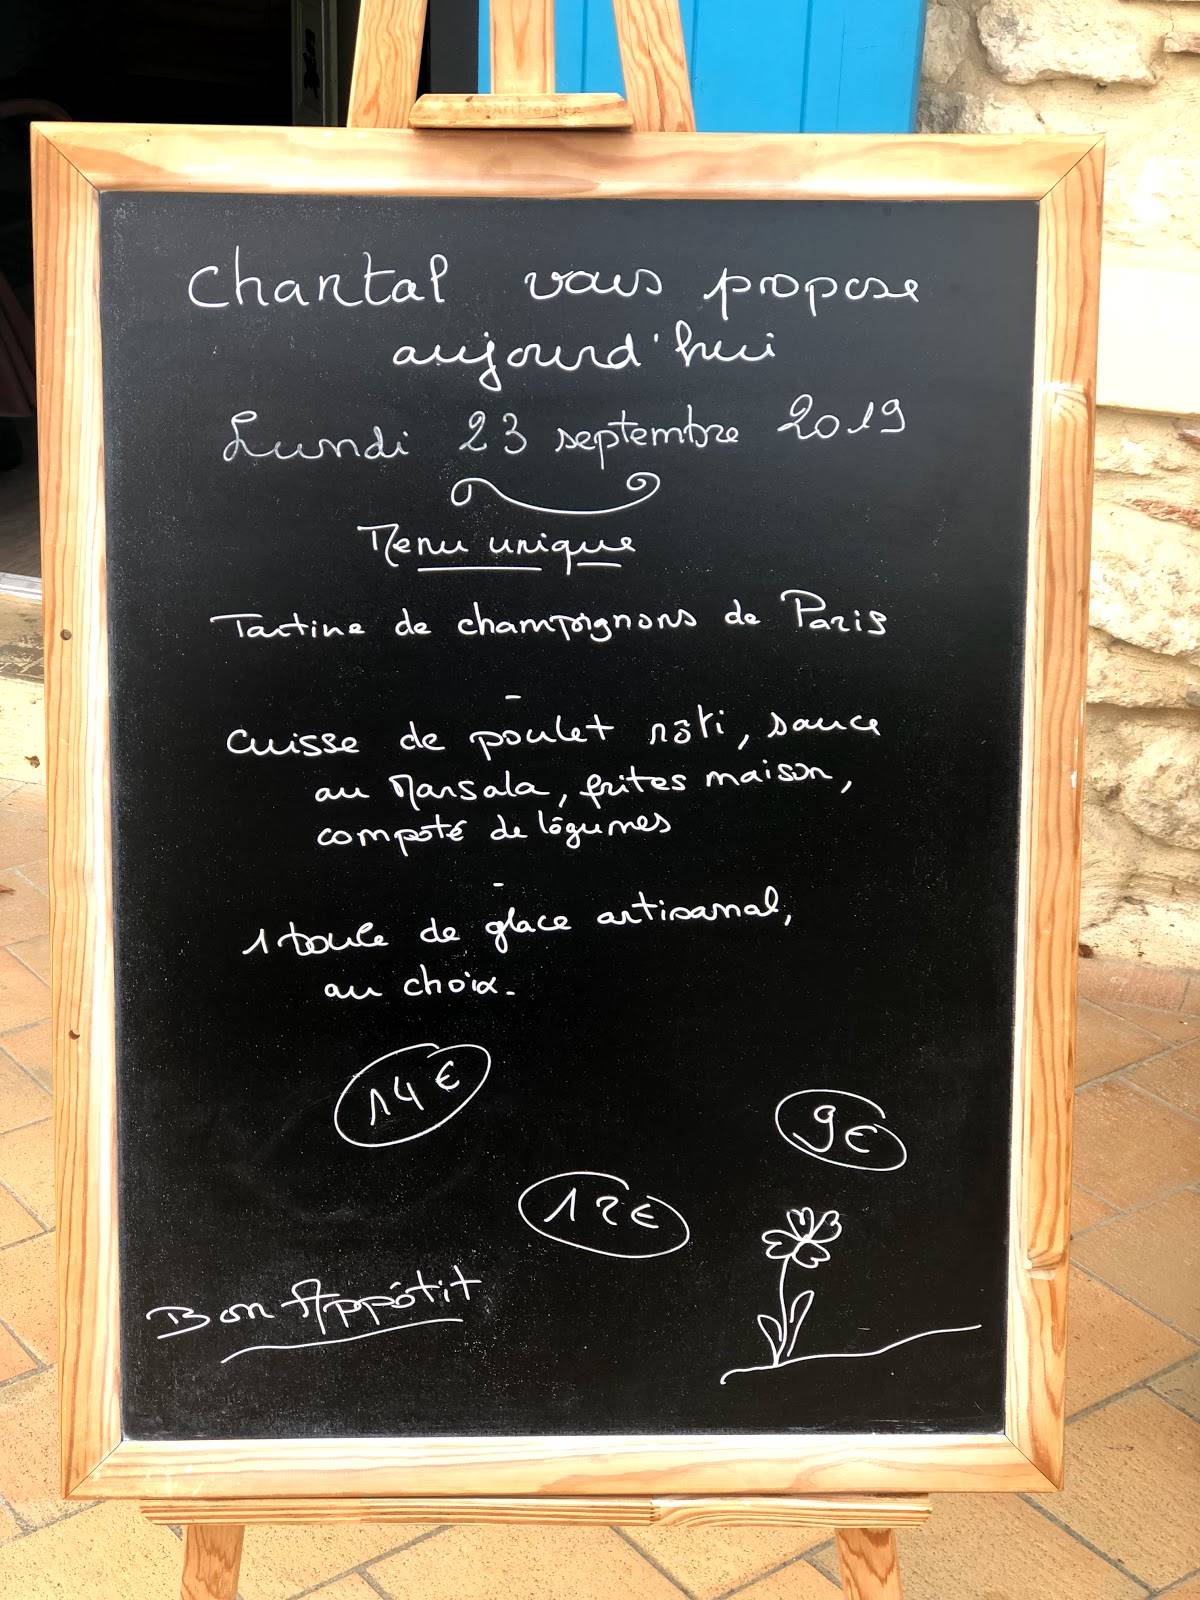 Chantal vous propose
aujourd'hui
Lundi 23 septembre 2019
Menu unique
Tartine de champignons de Paris
-
Cuisse de poulet rôti, sauce
au Marsala, frites maison,
compoté de légumes
-
1 boule de glace artisanal,
au choix.
14€
9€
12€
Bon Appétit